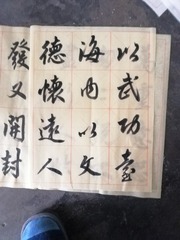 以武功壹
海内以文
德懷遠人
發又開封